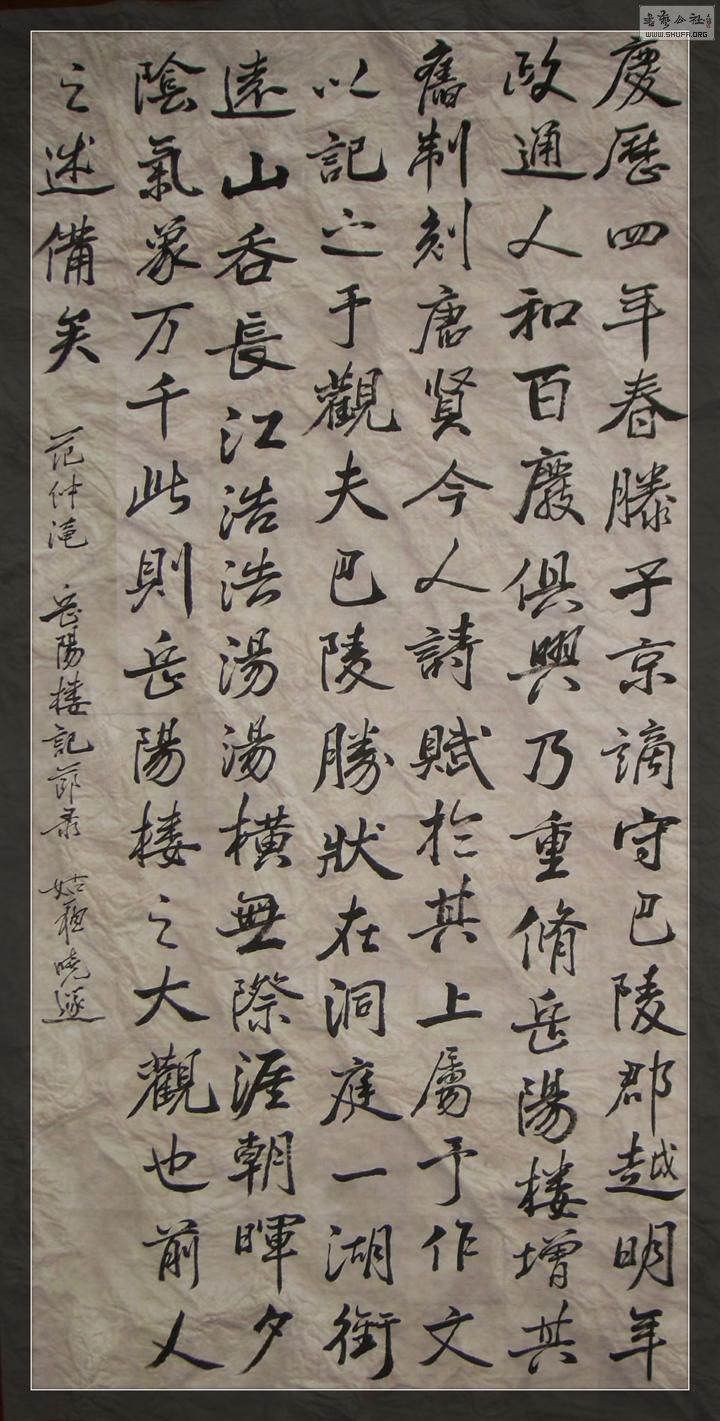 慶歷四年春滕子京謫守巴陵郡越明年
政通人和百廢俱興乃重脩岳陽楼增其
舊制刻唐賢今人詩賦於其上屬予作文
以記之于觀夫巴陵勝狀在洞庭一湖銜
遠山吞長江浩浩湯湯橫無際涯朝暉夕
陰氣象万千此則岳陽楼之大觀也前人
之述備矣 范仲淹 岳陽楼記節录 姑蘇曉
書藝公社
WWW.SHUFA.ORG